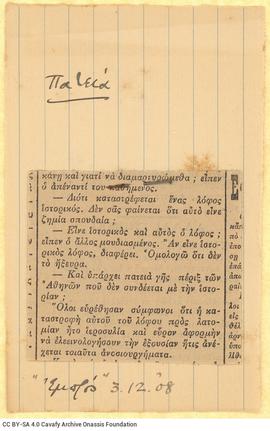 Πατειά
κάνῃ καὶ γιατί νὰ διαμαρτυρώμεθα ; εἶπεν
ὁ ἀπέναντί του καθήμενος.
— Διότι καταστρέφεται ἕνας λόφος
ἱστορικός. Δὲν σᾶς φαίνεται ὅτι αὐτὸ εἶνε
ζημία σπουδαία ;
— Εἶνε ἱστορικὸς καὶ αὐτὸς ὁ λόφος ;
εἶπεν ὁ ἄλλος μουδιασμένος. Ἂν εἶνε ἱστο-
ρικὸς λόφος, διαφέρει. Ὁμολογῶ ὅτι δὲν
τὸ ἤξευρα.
— Καὶ ὑπάρχει πατειὰ γῆς πέριξ τῶν
Ἀθηνῶν ποῦ δὲν συνδέεται μὲ τὴν ἱστο-
ρίαν ;
Ὅλοι εὑρέθησαν σύμφωνοι ὅτι ἡ κα-
ταστροφὴ αὐτοῦ τοῦ λόφου πρὸς λατο-
μίαν ἦτο ἱεροσυλία καὶ εὗρον ἀφορμὴν
νὰ ἐλεεινολογήσουν τὴν ἐξουσίαν ἥτις ἀνέ-
χεται τοιαῦτα ἀνοσιουργήματα.
3.12.'08
CC BY-SA 4.0 Cavafy Archive Onassis Foundation